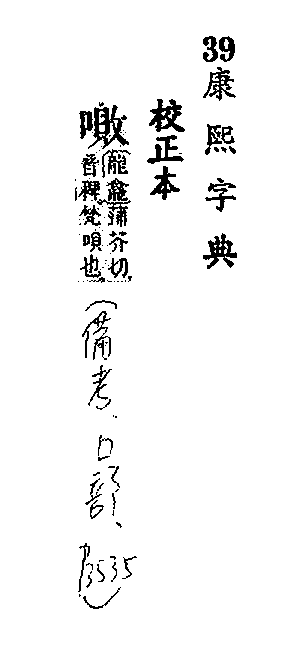 39
康熙字典
校正本
龍龕蒲芥切
音稗梵唄也
(備考、口部、